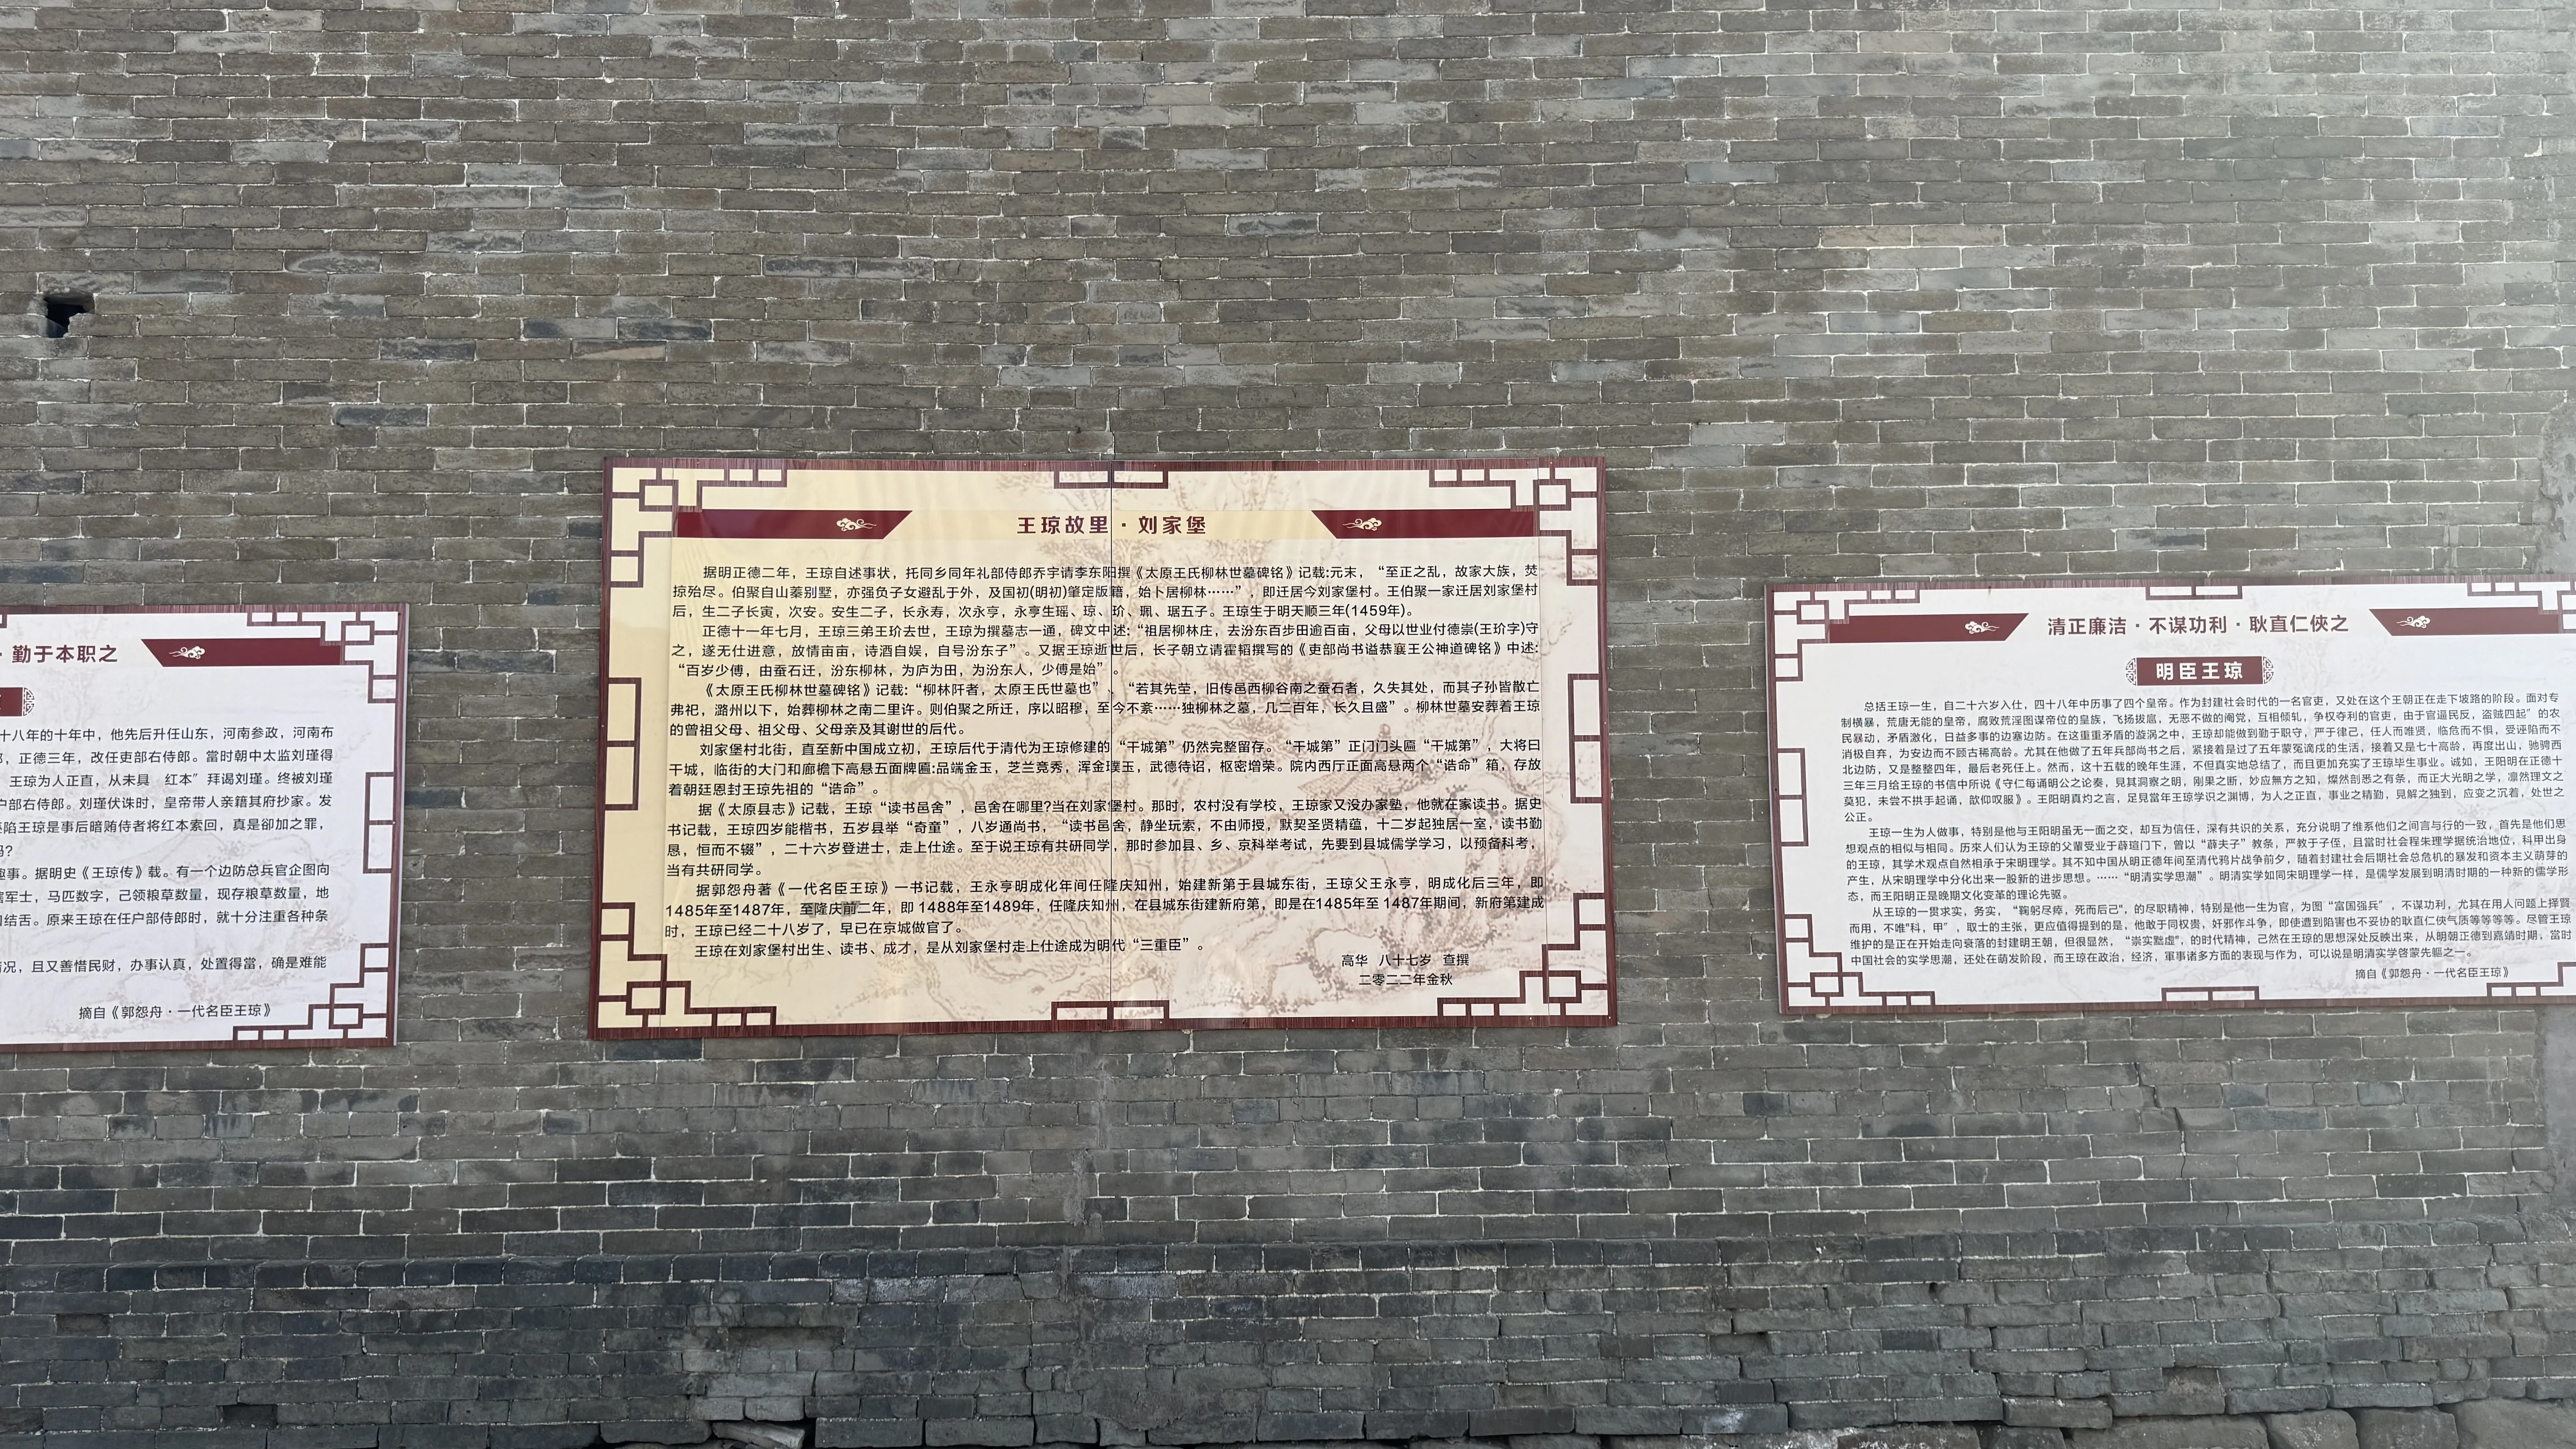 ·勤于本职之
十八年的十年中，他先后升任山东，河南参政，河南布
正德三年，改任吏部右侍郎。當时朝中太监刘瑾得
王琼为人正直，从未具 红本”拜谒刘瑾。终被刘瑾
户部右侍郎。刘瑾伏诛时，皇帝带人亲籍其府抄家。发
陷王琼是事后暗贿侍者将红本索回，真是卻加之罪，
吗?
趣事。据明史《王琼传》载。有一个边防总兵官企图向
军士，马匹数字，己领粮草数量，现存粮草数量，地
口结舌。原来王琼在任户部侍郎时，就十分注重各种条
情况，且又善惜民财，办事认真，处置得當，确是难能
摘自《郭怨舟·一代名臣王琼》
王琼故里·刘家堡
据明正德二年，王琼自述事状，托同乡同年礼部侍郎乔宇请李东阳撰《太原王氏柳林世墓碑铭》记载:元末，“至正之乱，故家大族，焚
掠殆尽。伯聚自山蓁别墅，亦强负子女避乱于外，及国初(明初)肇定版籍，始卜居柳林……”，即迁居今刘家堡村。王伯聚一家迁居刘家堡村
后，生二子长寅，次安。安生二子，长永寿，次永亨，永亨生瑶、琼、玠、珮、琚五子。王琼生于明天顺三年(1459年)。
正德十一年七月，王琼三弟王玠去世，王琼为撰墓志一通，碑文中述:“祖居柳林庄，去汾东百步田逾百亩，父母以世业付德崇(王玠字)守
之，遂无仕进意，放情亩亩，诗酒自娱，自号汾东子”。又据王琼逝世后，长子朝立请霍韬撰写的《吏部尚书谥恭襄王公神道碑铭》中述:
“百岁少傅，由蚕石迁，汾东柳林，为庐为田，为汾东人，少傅是始”。
《太原王氏柳林世墓碑铭》记载:“柳林阡者，太原王氏世墓也”、“若其先茔，旧传邑西柳谷南之蚕石者，久失其处，而其子孙皆散亡
弗祀，潞州以下，始葬柳林之南二里许。则伯聚之所迁，序以昭穆，至今不紊……独柳林之墓，几二百年，长久且盛”。柳林世墓安葬着王琼
的曾祖父母、祖父母、父母亲及其谢世的后代。
刘家堡村北街，直至新中国成立初，王琼后代于清代为王琼修建的“干城第”仍然完整留存。“干城第”正门门头匾“干城第”，大将曰
干城，临街的大门和廊檐下高悬五面牌匾:品端金玉，芝兰竞秀，浑金璞玉，武德待诏，枢密增荣。院内西厅正面高悬两个“诰命”箱，存放
着朝廷恩封王琼先祖的“诰命”。
据《太原县志》记载，王琼“读书邑舍”，邑舍在哪里?当在刘家堡村。那时，农村没有学校，王琼家又没办家塾，他就在家读书。据史
书记载，王琼四岁能楷书，五岁县举“奇童”，八岁通尚书，“读书邑舍，静坐玩索，不由师授，默契圣贤精蕴，十二岁起独居一室，读书勤
恳，恒而不辍”，二十六岁登进士，走上仕途。至于说王琼有共研同学，那时参加县、乡、京科举考试，先要到县城儒学学习，以预备科考，
当有共研同学。
据郭怨舟著《一代名臣王琼》一书记载，王永亨明成化年间任隆庆知州，始建新第于县城东街，王琼父王永亨，明成化后三年，即
1485年至1487年，至隆庆前二年，即 1488年至1489年，任隆庆知州，在县城东街建新府第，即是在1485年至 1487年期间，新府第建成
时，王琼已经二十八岁了，早已在京城做官了。
王琼在刘家堡村出生、读书、成才，是从刘家堡村走上仕途成为明代“三重臣”。
高华 八十七岁 查撰
二零二二年金秋
清正廉洁·不谋功利·耿直仁侠之
明臣王琼
总括王琼一生，自二十六岁入仕，四十八年中历事了四个皇帝。作为封建社会时代的一名官吏，又处在这个王朝正在走下坡路的阶段。面对专
制横暴，荒唐无能的皇帝，腐败荒淫图谋帝位的皇族，飞扬拔扈，无恶不做的阉党，互相倾轧，争权夺利的官吏，由于官逼民反，盗贼四起”的农
民暴动，矛盾激化，日益多事的边塞边防。在这重重矛盾的漩涡之中，王琼却能做到勤于职守，严于律己，任人而唯贤，临危而不惧，受诬陷而不
消极自弃，为安边而不顾古稀高龄。尤其在他做了五年兵部尚书之后，紧接着是过了五年蒙冤谪戍的生活，接着又是七十高龄，再度出山，驰骋西
北边防，又是整整四年，最后老死任上。然而，这十五载的晚年生涯，不但真实地总结了，而且更加充实了王琼毕生事业。诚如，王阳明在正德十
三年三月给王琼的书信中所说《守仁每诵明公之论奏，見其洞察之明，刚果之断，妙应無方之知，燦然剖悉之有条，而正大光明之学，凛然理文之
莫犯，未尝不拱手起诵，歆仰叹服》。王阳明真灼之言，足見當年王琼学识之渊博，为人之正直，事业之精勤，見解之独到，应变之沉着，处世之
公正。
王琼一生为人做事，特别是他与王阳明虽无一面之交，却互为信任，深有共识的关系，充分说明了维系他们之间言与行的一致，首先是他们思
想观点的相似与相同。历來人们认为王琼的父輩受业于薛瑄门下，曾以“薛夫子”教条，严教于子侄，且當时社会程朱理学据统治地位，科甲出身
的王琼，其学术观点自然相承于宋明理学。其不知中国从明正德年间至清代鸦片战争前夕，随着封建社会后期社会总危机的暴发和资本主义萌芽的
产生，从宋明理学中分化出来一股新的进步思想。……“明清实学思潮”。明清实学如同宋明理学一样，是儒学发展到明清时期的一种新的儒学形
态，而王阳明正是晚期文化变革的理论先驱。
从王琼的一贯求实，务实，“鞠躬尽瘁，死而后己”，的尽职精神，特别是他一生为官，为图“富国强兵”，不谋功利，尤其在用人问题上择贤
而用，不唯“科，甲”，取士的主张，更应值得提到的是，他敢于同权贵，奸邪作斗争，即使遭到陷害也不妥协的耿直仁侠气质等等等等。尽管王琼
维护的是正在开始走向衰落的封建明王朝，但很显然，“崇实黜虚”，的时代精神，己然在王琼的思想深处反映出来，从明朝正德到嘉靖时期，當时
中国社会的实学思潮，还处在萌发阶段，而王琼在政治，经济，軍事诸多方面的表现与作为，可以说是明清实学啓蒙先軀之一。
摘自《郭怨舟·一代名臣王琼》